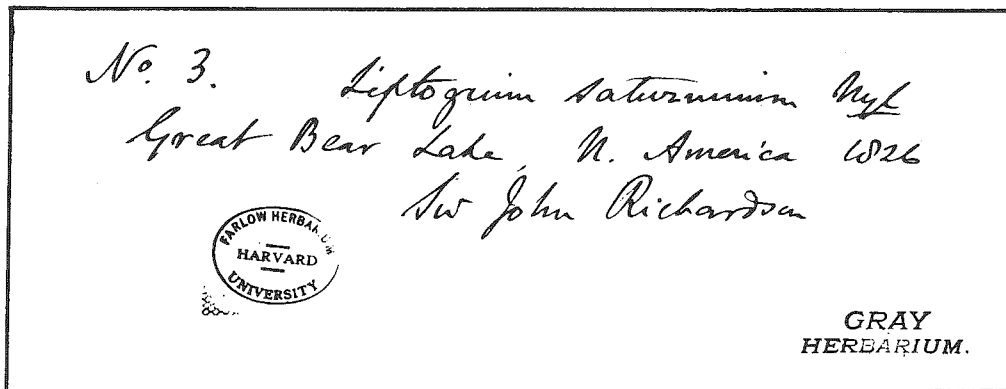 No. 3. Liptogium saturninum Nyl
Great Bear Lake, N. America 1826
Sir John Richardson
FARLOW HERBARIUM
HARVARD
UNIVERSITY
GRAY
HERBARIUM.